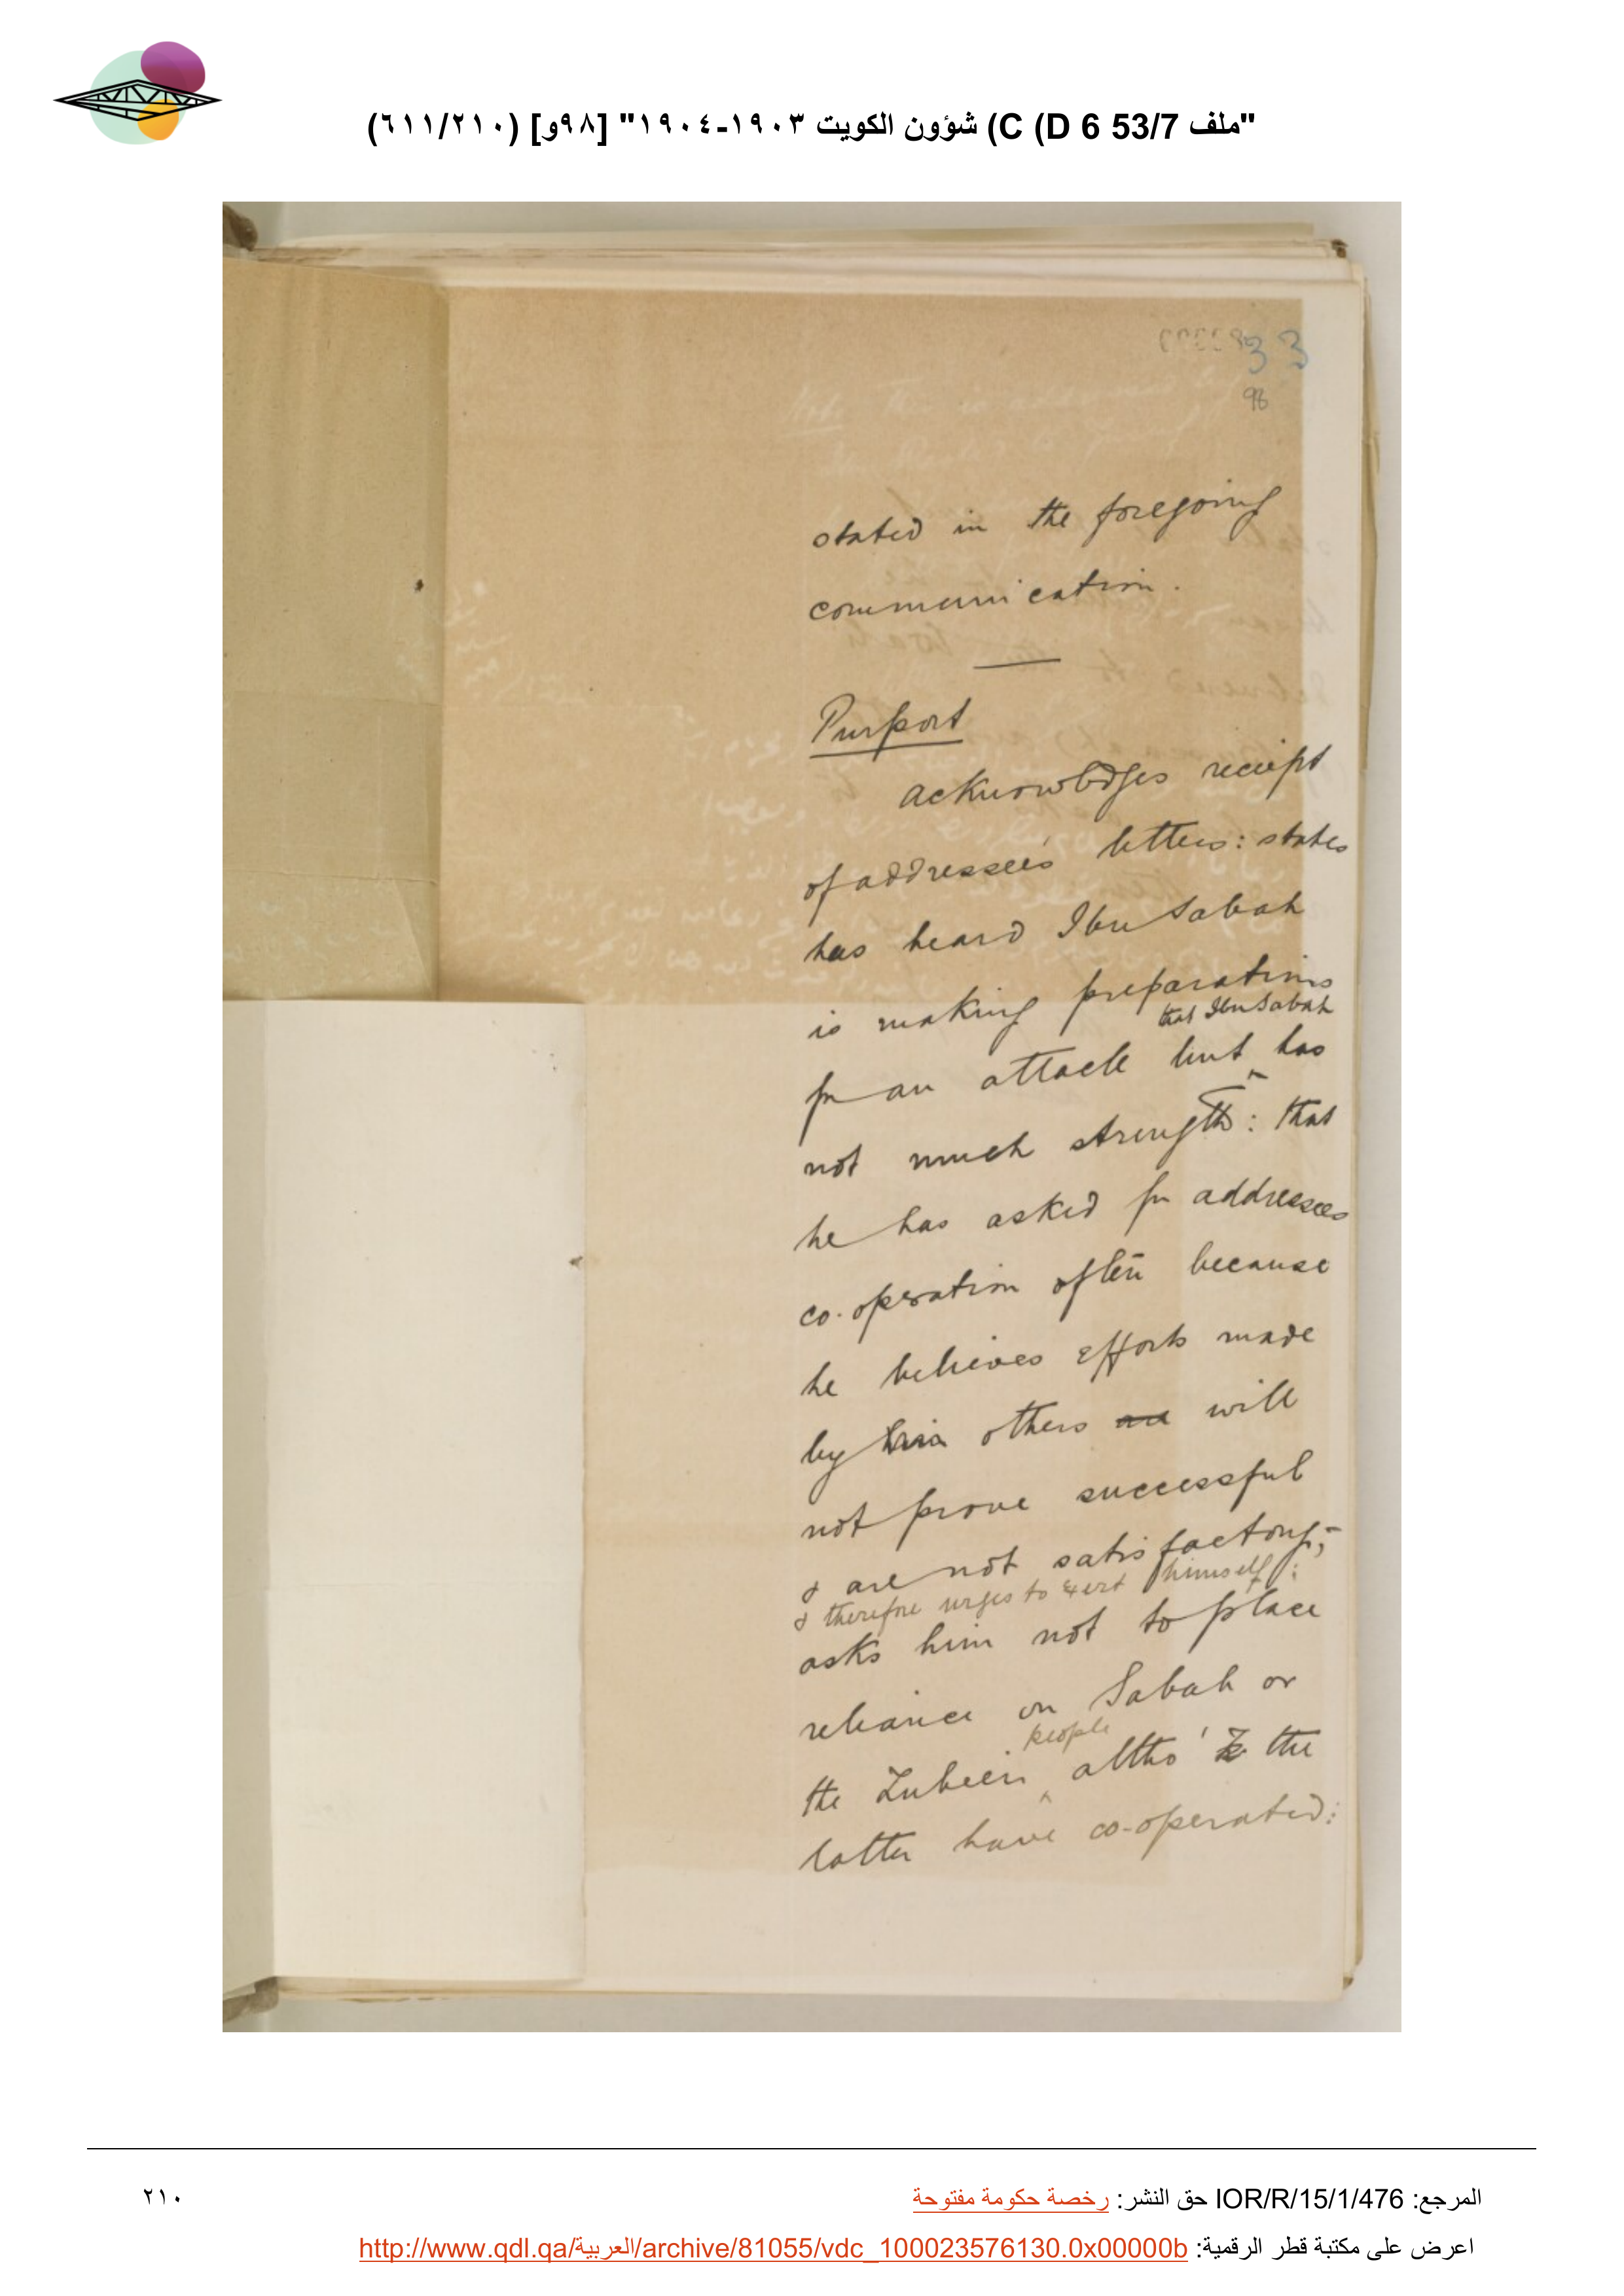 "ملف 53/7 C (D 6) شؤون الكويت ١٩٠٣-١٩٠٤" [٩٨و] (٦١١/٢١٠)
33
98
stated in the foregoing
communication.
Purport
acknowledges reciept
of addressee's letters: states
has heard Ibn Sabah
is making preparations
that Ibn Sabah
for an attack but has
not much strength: that
he has asked for addressees
co-operation often because
he believes efforts made
by others will
not prove successful
& are not satisfactory;-
& therefore urges to exert himself:
asks him not to place
reliance on Sabah or
people
the Zubeir altho' the
latter have co-operated:
المرجع: IOR/R/15/1/476 حق النشر: رخصة حكومة مفتوحة
٢١٠
اعرض على مكتبة قطر الرقمية: http://www.qdl.qa/العربية/archive/81055/vdc_100023576130.0x00000b